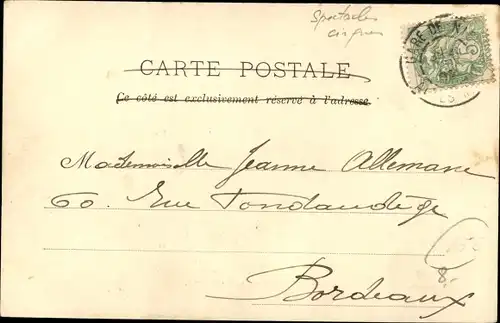 Spectacles
cirques
GARE DE N
5
CARTE POSTALE
Ce côté est exclusivement réservé à l'adresse.
Mademoiselle Jeanne Allemane
60. Rue Fondaudège
Bordeaux
8.-